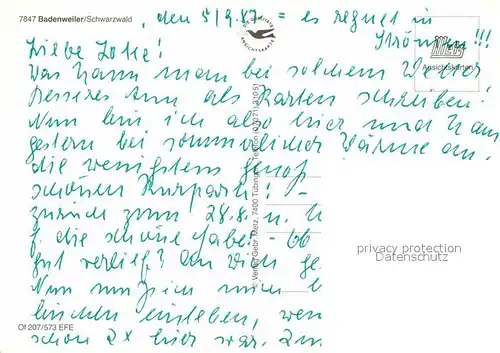 7847 Badenweiler/Schwarzwald
, den 5/9.87 = es regnet in
Strömen!!!
Ansichtskarten
Liebe Lotte!
Was kann man bei solchem Wetter
besseres tun als Karten schreiben!
Nun bin ich also hier und kam
gestern bei sommerlicher Wärme an.
die wenigstens
schönen Kurpark!
zurück zum 28.8. u.
f. die schöne Gabe! - Ob
gut verlief? An Dich
Nun muß ich mich
bischen einleben, wenn
schon 2x hier war.
© Verlag Gebr. Metz, 7400 Tübingen, Telefon (07071) 31051
privacy protection
Datenschutz
Of 207/573 EFE